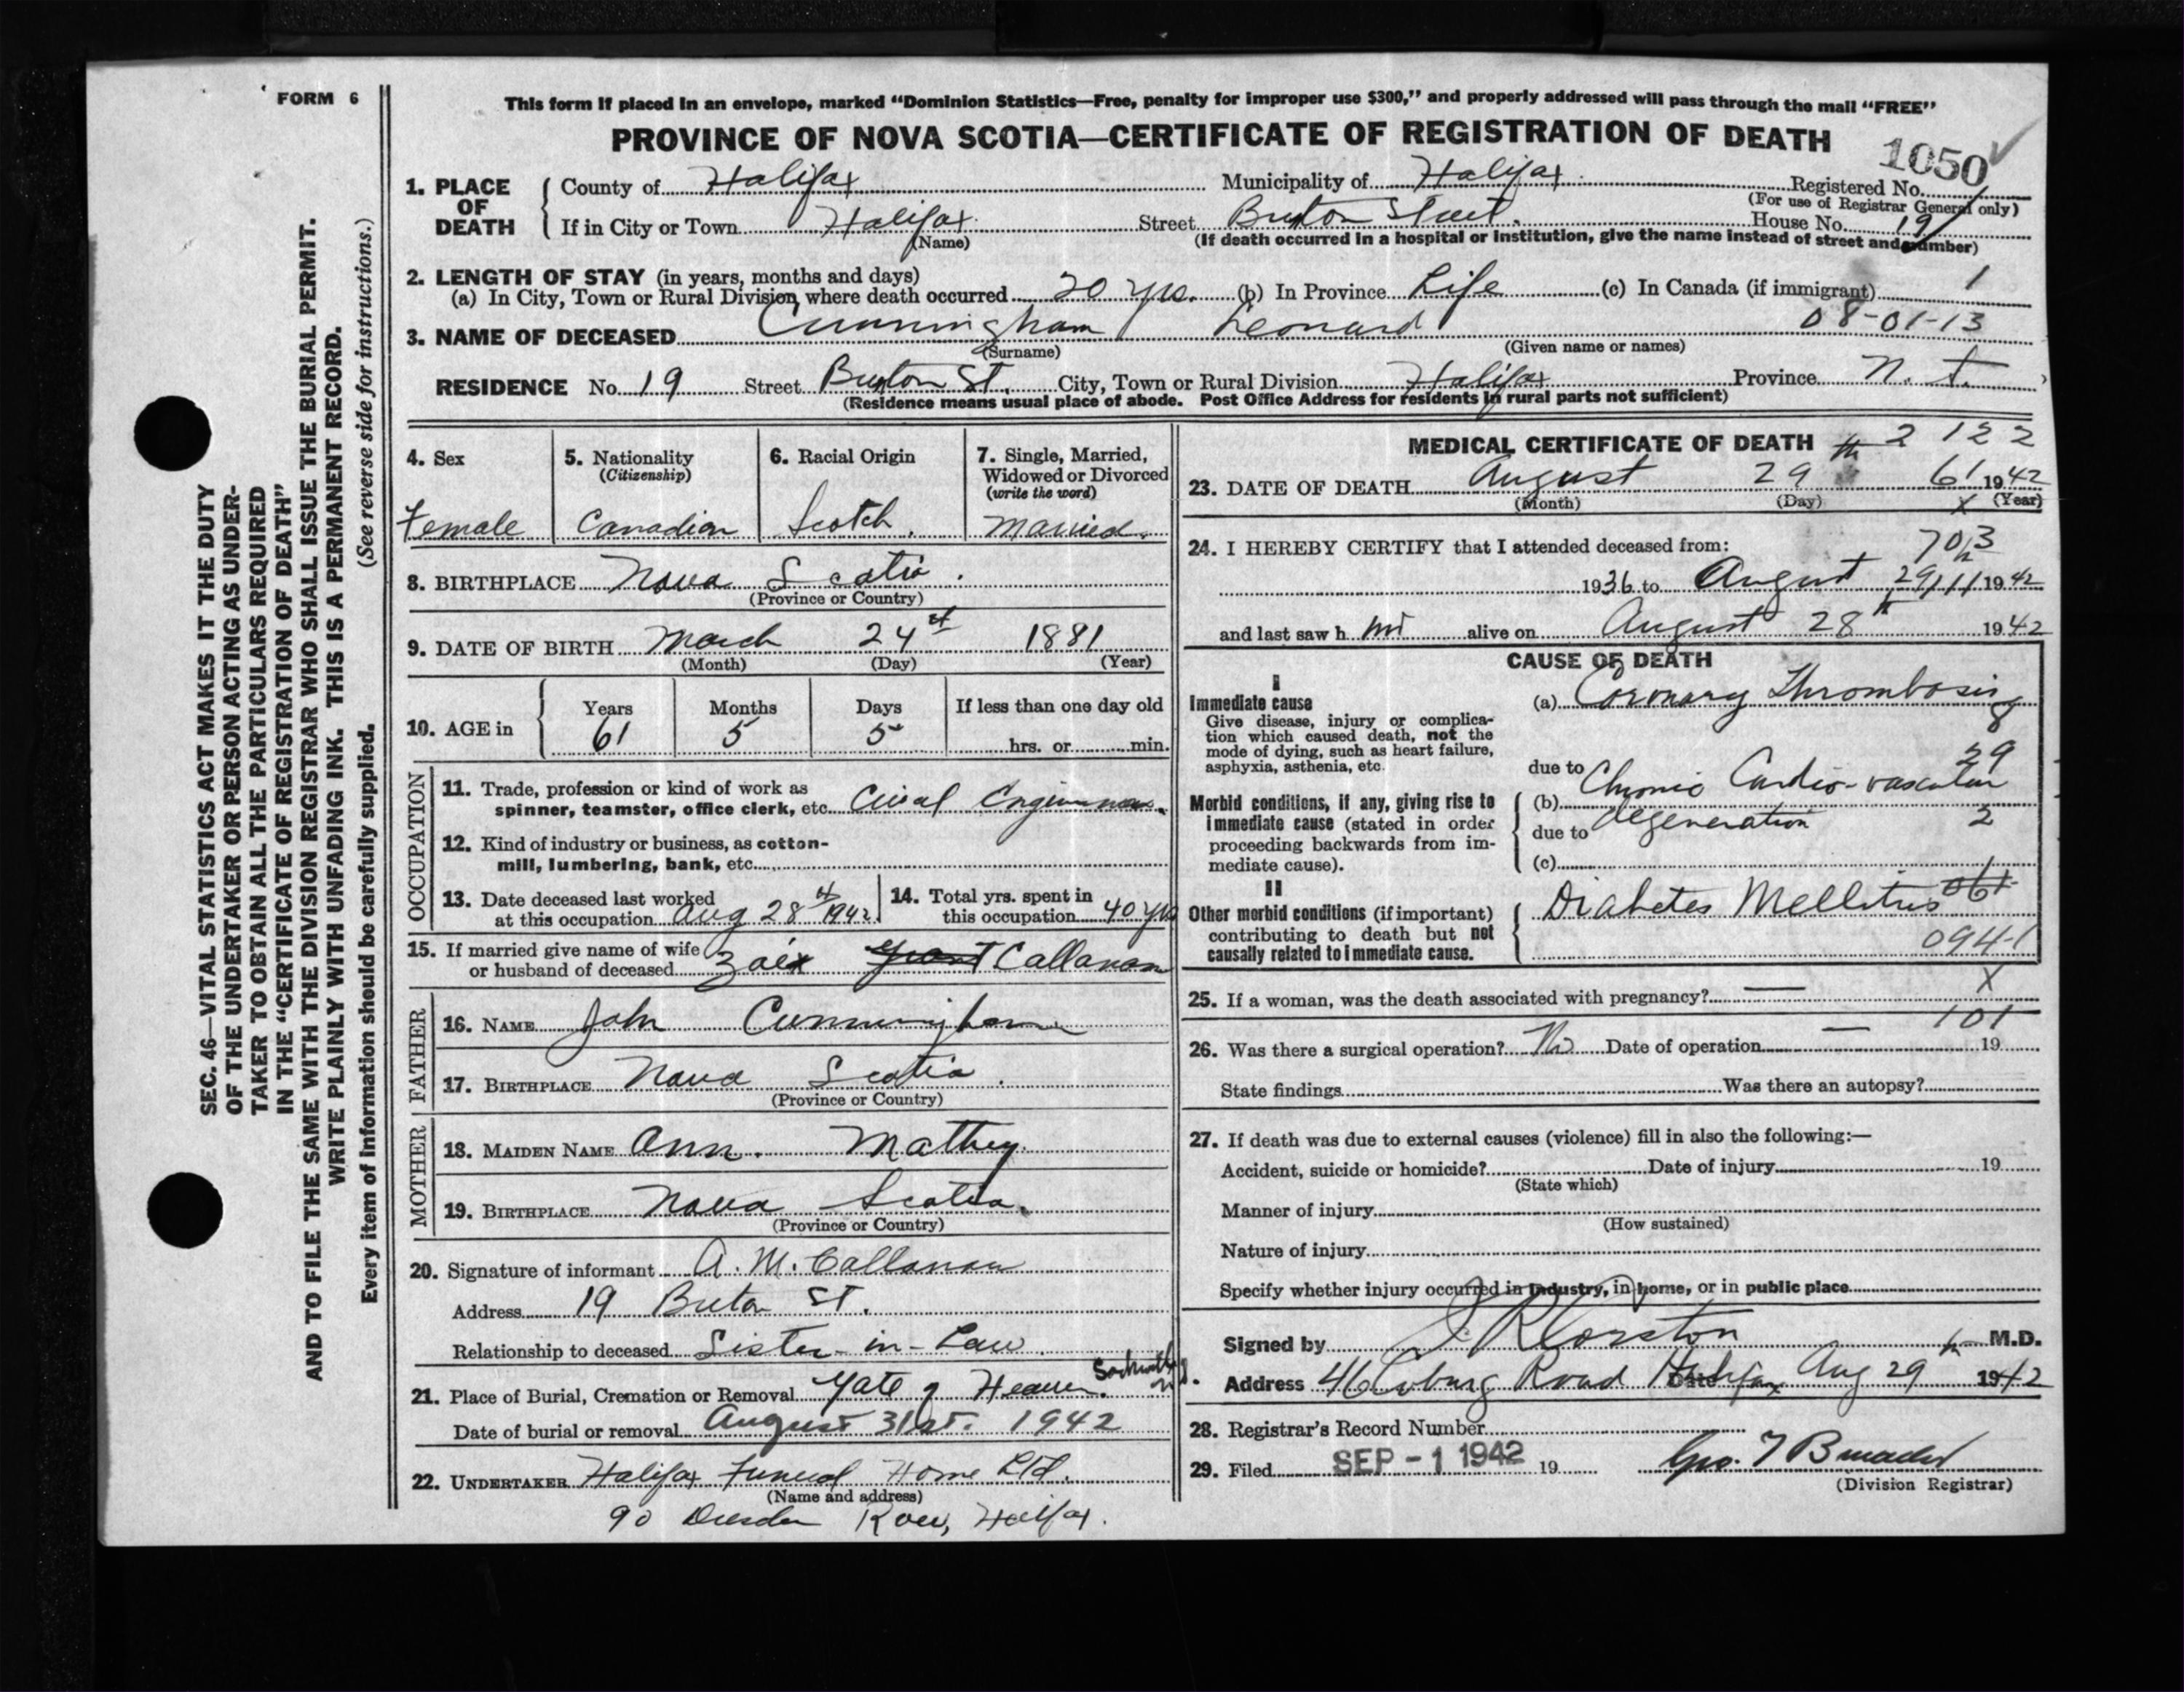 FORM 6
This form if placed in an envelope, marked “Dominion Statistics—Free, penalty for improper use $300,” and properly addressed will pass through the mail “FREE”
PROVINCE OF NOVA SCOTIA—CERTIFICATE OF REGISTRATION OF DEATH
1050
1. PLACE OF DEATH
County of Halifax Municipality of Halifax Registered No.
(For use of Registrar General only)
If in City or Town Halifax Street Street. House No. 19
(Name) (If death occurred in a hospital or institution, give the name instead of street and number)
2. LENGTH OF STAY (in years, months and days)
(a) In City, Town or Rural Division where death occurred 20 yrs. (b) In Province Life (c) In Canada (if immigrant) 1
3. NAME OF DECEASED Cunningham Leonard 08-01-13
(Surname) (Given name or names)
RESIDENCE No. 19 Street St. City, Town or Rural Division Halifax Province N. S.
(Residence means usual place of abode. Post Office Address for residents in rural parts not sufficient)
4. Sex
Female
5. Nationality
(Citizenship)
Canadian
6. Racial Origin
Scotch.
7. Single, Married,
Widowed or Divorced
(write the word)
Married.
8. BIRTHPLACE Nova Scotia.
(Province or Country)
9. DATE OF BIRTH March 24th 1881
(Month) (Day) (Year)
10. AGE in
Years Months Days If less than one day old
61 5 5 hrs. or min.
OCCUPATION
11. Trade, profession or kind of work as
spinner, teamster, office clerk, etc. Civil
12. Kind of industry or business, as cotton-
mill, lumbering, bank, etc.
13. Date deceased last worked
at this occupation Aug 28th 1942.
14. Total yrs. spent in
this occupation 40 yrs
15. If married give name of wife
or husband of deceased Callanan
FATHER
16. NAME John Cunningham
17. BIRTHPLACE Nova Scotia.
(Province or Country)
MOTHER
18. MAIDEN NAME Ann.
19. BIRTHPLACE Nova Scotia.
(Province or Country)
20. Signature of informant A. M. Callanan
Address 19 St.
Relationship to deceased Sister-in-Law.
21. Place of Burial, Cremation or Removal Gate of Heaven.
Date of burial or removal August 31st. 1942
22. UNDERTAKER Halifax Funeral Home Ltd.
(Name and address)
90 Dresden Row, Halifax.
MEDICAL CERTIFICATE OF DEATH 2 122
23. DATE OF DEATH August 29th 61 1942
(Month) (Day) x (Year)
24. I HEREBY CERTIFY that I attended deceased from: 703
1936 to August 29th 1942
and last saw h im alive on August 28th 1942
CAUSE OF DEATH
I
Immediate cause
Give disease, injury or complica-
tion which caused death, not the
mode of dying, such as heart failure,
asphyxia, asthenia, etc.
(a) Coronary Thrombosis
8
29
due to
Morbid conditions, if any, giving rise to
immediate cause (stated in order
proceeding backwards from im-
mediate cause).
(b) Chronic Cardio-vascular
due to degeneration 2
(c)
II
Other morbid conditions (if important)
contributing to death but not
causally related to immediate cause.
Diabetes Mellitus 061
094-1
25. If a woman, was the death associated with pregnancy? — X
101
26. Was there a surgical operation? No Date of operation — 19
State findings Was there an autopsy?
27. If death was due to external causes (violence) fill in also the following:—
Accident, suicide or homicide? Date of injury 19
(State which)
Manner of injury
(How sustained)
Nature of injury
Specify whether injury occurred in industry, in home, or in public place
Signed by J R Corston M.D.
Address 46 Coburg Road Halifax Date Aug 29th 1942
28. Registrar's Record Number
29. Filed SEP - 1 1942 19
(Division Registrar)
SEC. 46—VITAL STATISTICS ACT MAKES IT THE DUTY
OF THE UNDERTAKER OR PERSON ACTING AS UNDER-
TAKER TO OBTAIN ALL THE PARTICULARS REQUIRED
IN THE “CERTIFICATE OF REGISTRATION OF DEATH”
AND TO FILE THE SAME WITH THE DIVISION REGISTRAR WHO SHALL ISSUE THE BURIAL PERMIT.
WRITE PLAINLY WITH UNFADING INK. THIS IS A PERMANENT RECORD.
Every item of information should be carefully supplied. (See reverse side for instructions.)